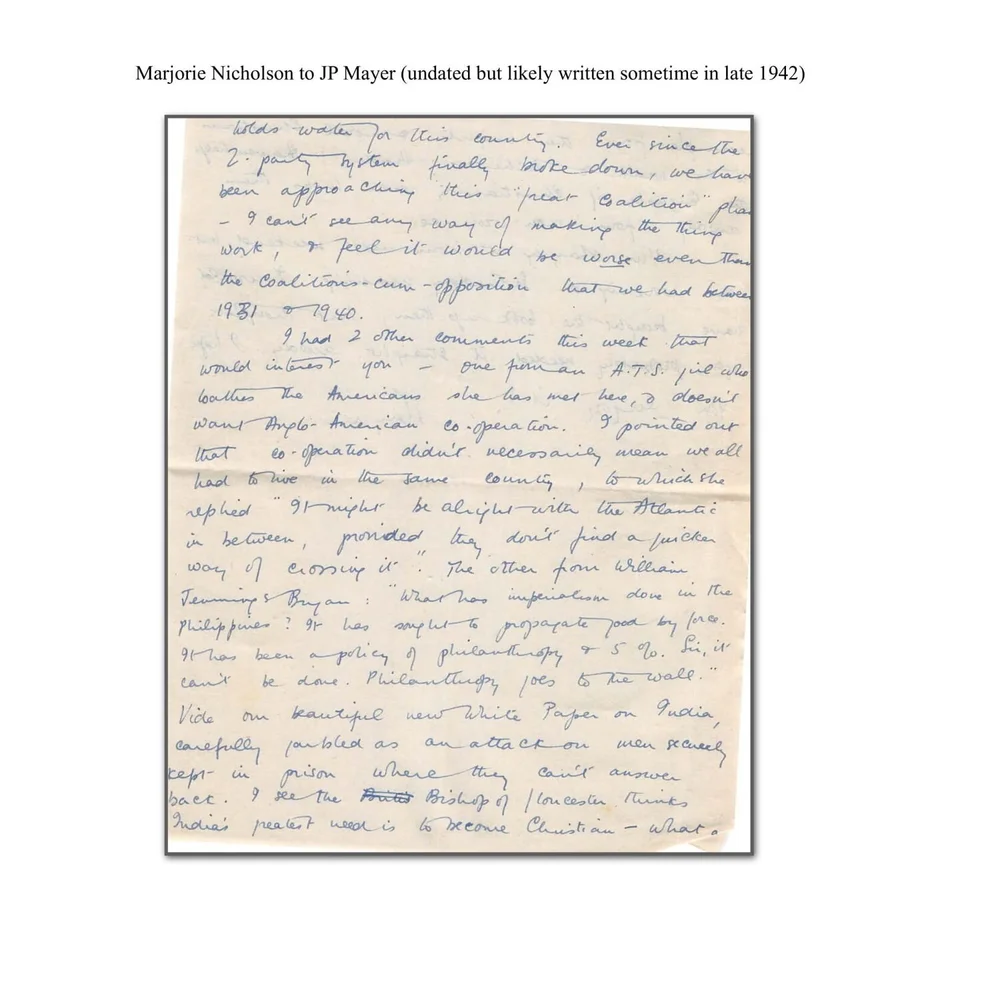 Marjorie Nicholson to JP Mayer (undated but likely written sometime in late 1942)
holds water for this country. Ever since the
2-party system finally broke down, we have
been approaching this "great coalition"
– I can't see any way of making the thing
work, & feel it would be worse even than
the coalitions-cum-opposition that we had between
1931 & 1940.
I had 2 other comments this week that
would interest you – one from an A.T.S. girl who
loathes the Americans she has met here, & doesn't
want Anglo-American co-operation. I pointed out
that co-operation didn't necessarily mean we all
had to live in the same country, to which she
replied "It might be alright with the Atlantic
in between, provided they don't find a quicker
way of crossing it". The other from William
Jennings Bryan: "What has imperialism done in the
Philippines? It has sought to propagate good by force.
It has been a policy of philanthropy & 5%. Sir, it
can't be done. Philanthropy goes to the wall."
Vide our beautiful new White Paper on India,
carefully garbled as an attack on men securely
kept in prison where they can't answer
back. I see the Bishop of Gloucester thinks
India's greatest need is to become Christian – what a